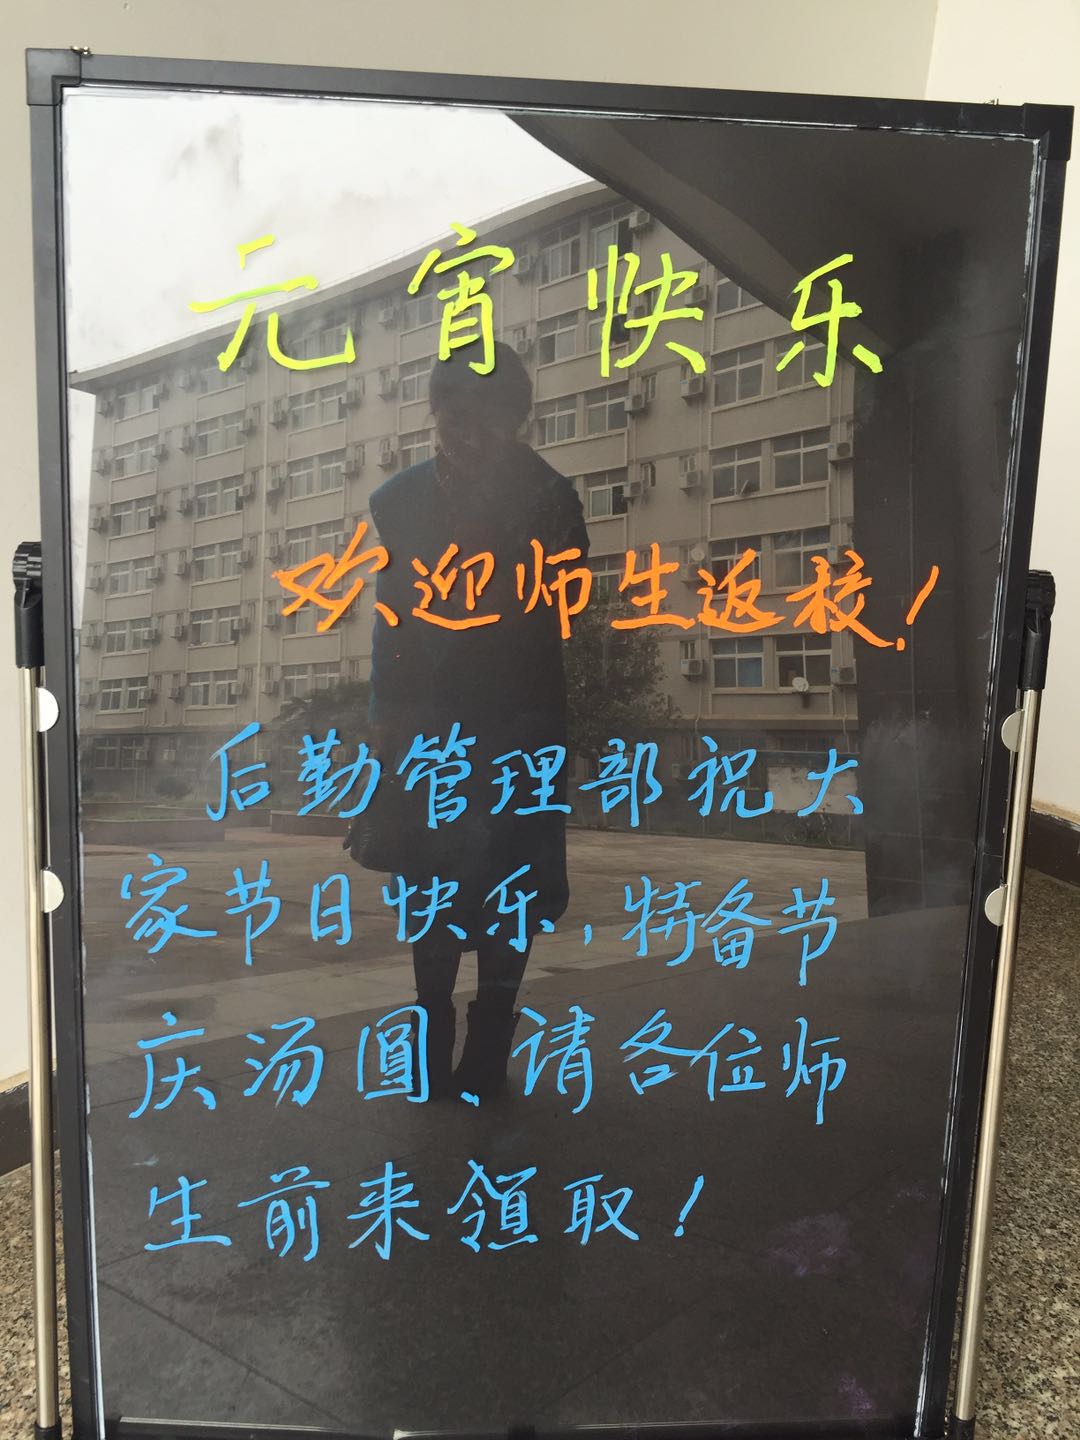 元宵快乐
欢迎师生返校!
后勤管理部祝大
家节日快乐,特备节
庆汤圓、请各位师
生前来領取!